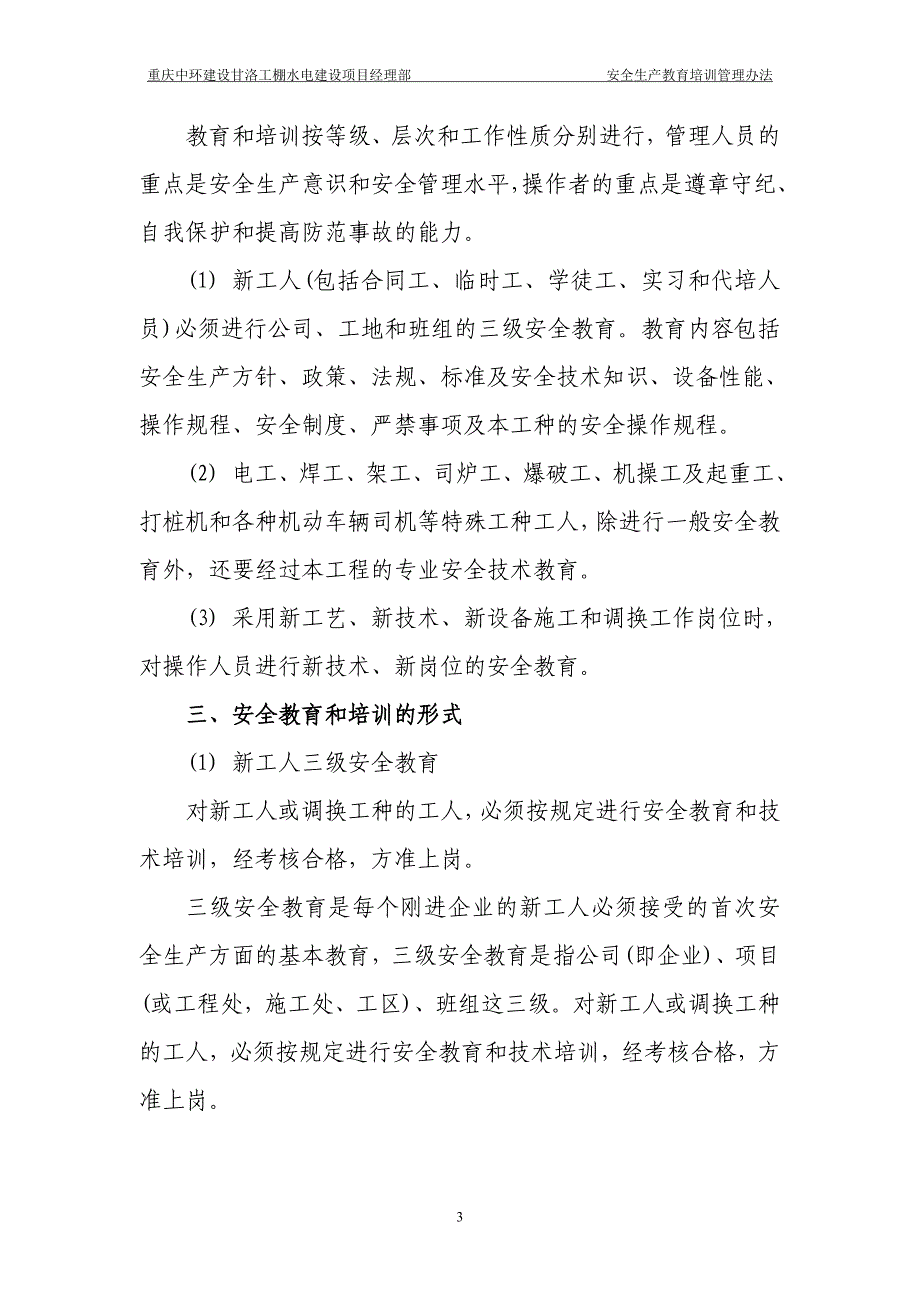 重庆中环建设甘洛工棚水电建设项目经理部 安全生产教育培训管理办法
教育和培训按等级、层次和工作性质分别进行，管理人员的
重点是安全生产意识和安全管理水平，操作者的重点是遵章守纪、
自我保护和提高防范事故的能力。
(1) 新工人(包括合同工、临时工、学徒工、实习和代培人
员)必须进行公司、工地和班组的三级安全教育。教育内容包括
安全生产方针、政策、法规、标准及安全技术知识、设备性能、
操作规程、安全制度、严禁事项及本工种的安全操作规程。
(2) 电工、焊工、架工、司炉工、爆破工、机操工及起重工、
打桩机和各种机动车辆司机等特殊工种工人，除进行一般安全教
育外，还要经过本工程的专业安全技术教育。
(3) 采用新工艺、新技术、新设备施工和调换工作岗位时，
对操作人员进行新技术、新岗位的安全教育。
三、安全教育和培训的形式
(1) 新工人三级安全教育
对新工人或调换工种的工人，必须按规定进行安全教育和技
术培训，经考核合格，方准上岗。
三级安全教育是每个刚进企业的新工人必须接受的首次安
全生产方面的基本教育，三级安全教育是指公司(即企业)、项目
(或工程处，施工处、工区)、班组这三级。对新工人或调换工种
的工人，必须按规定进行安全教育和技术培训，经考核合格，方
准上岗。
3